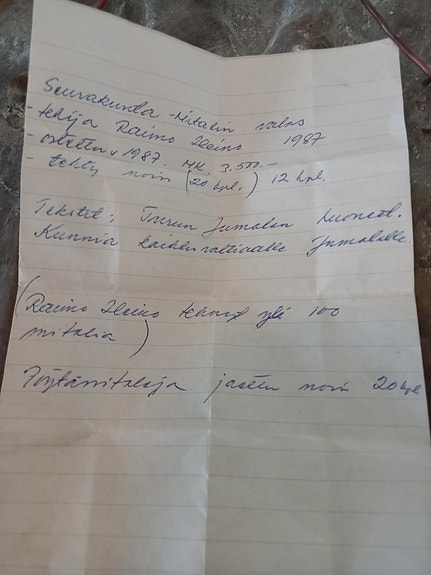 Seurakunta-Mitalin valos
- tekijä Raimo Heino 1987
- ostettu v 1987 MK. 3.500.-
- tehty noin (20 kpl.) 12 kpl.
Tekstit: Jumalan huoneet.
Kunnia kaikkivaltiaalle Jumalalle.
(Raimo Heino tehnyt yli 100
mitalia)
Pöytämitaleja jaettu noin 20 kpl